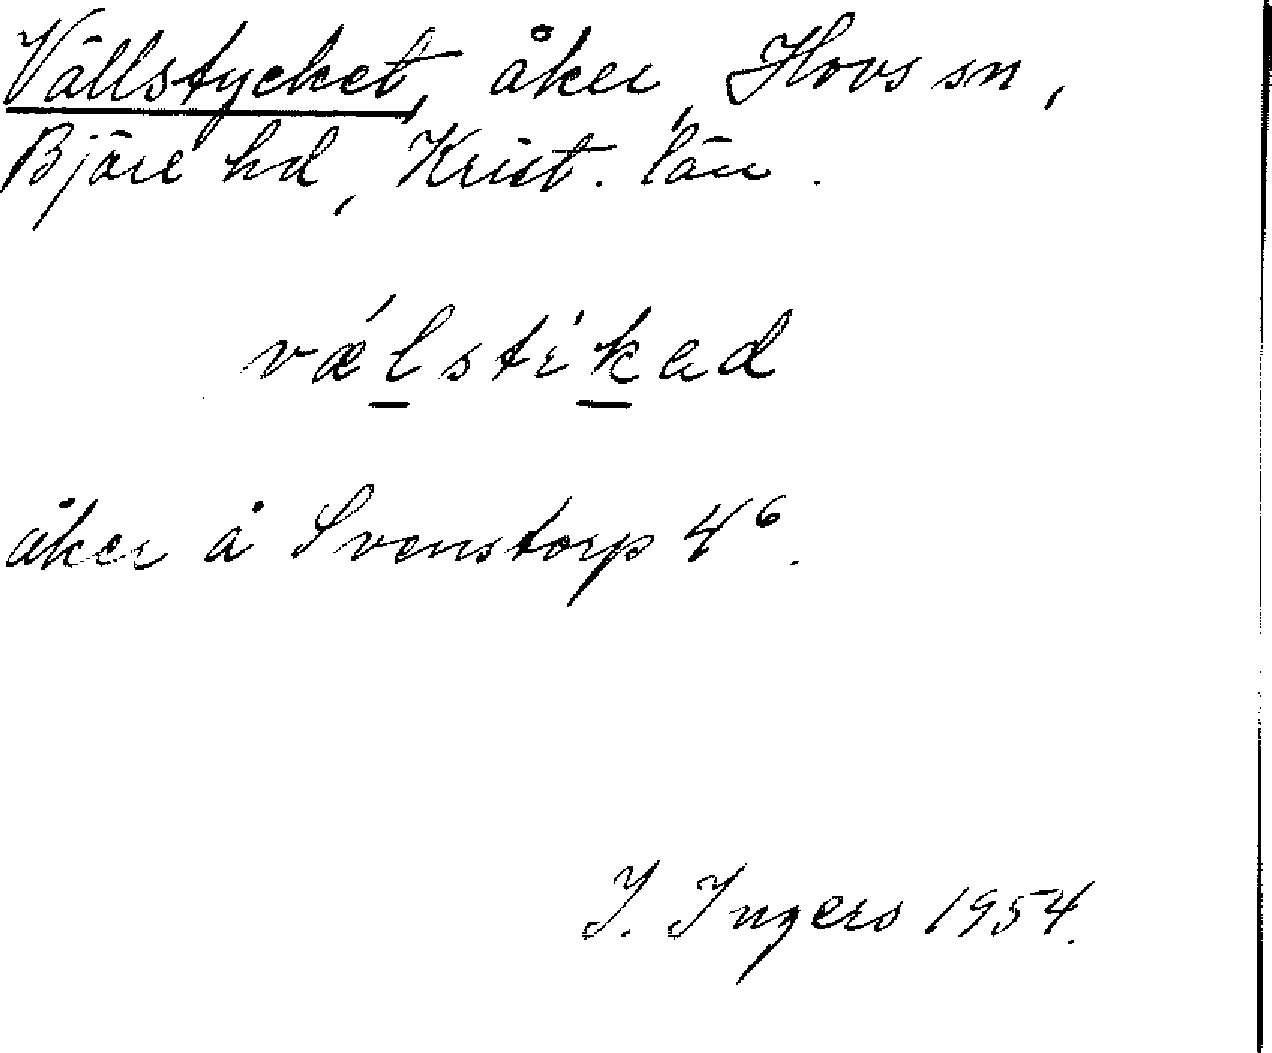 Vällstycket, åker, Hovs sn,
Bjäre hd, Krist. län.
væ´lsti`kad
åker å Svenstorp 4⁶.
I. Ingers 1954.